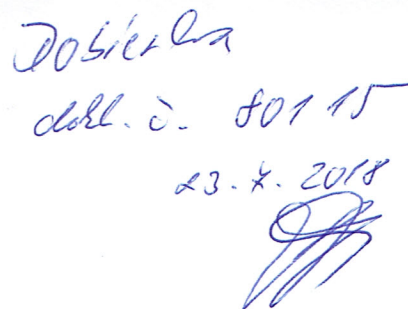 Dobierka
dokl. č. 801 15
23. 7. 2018